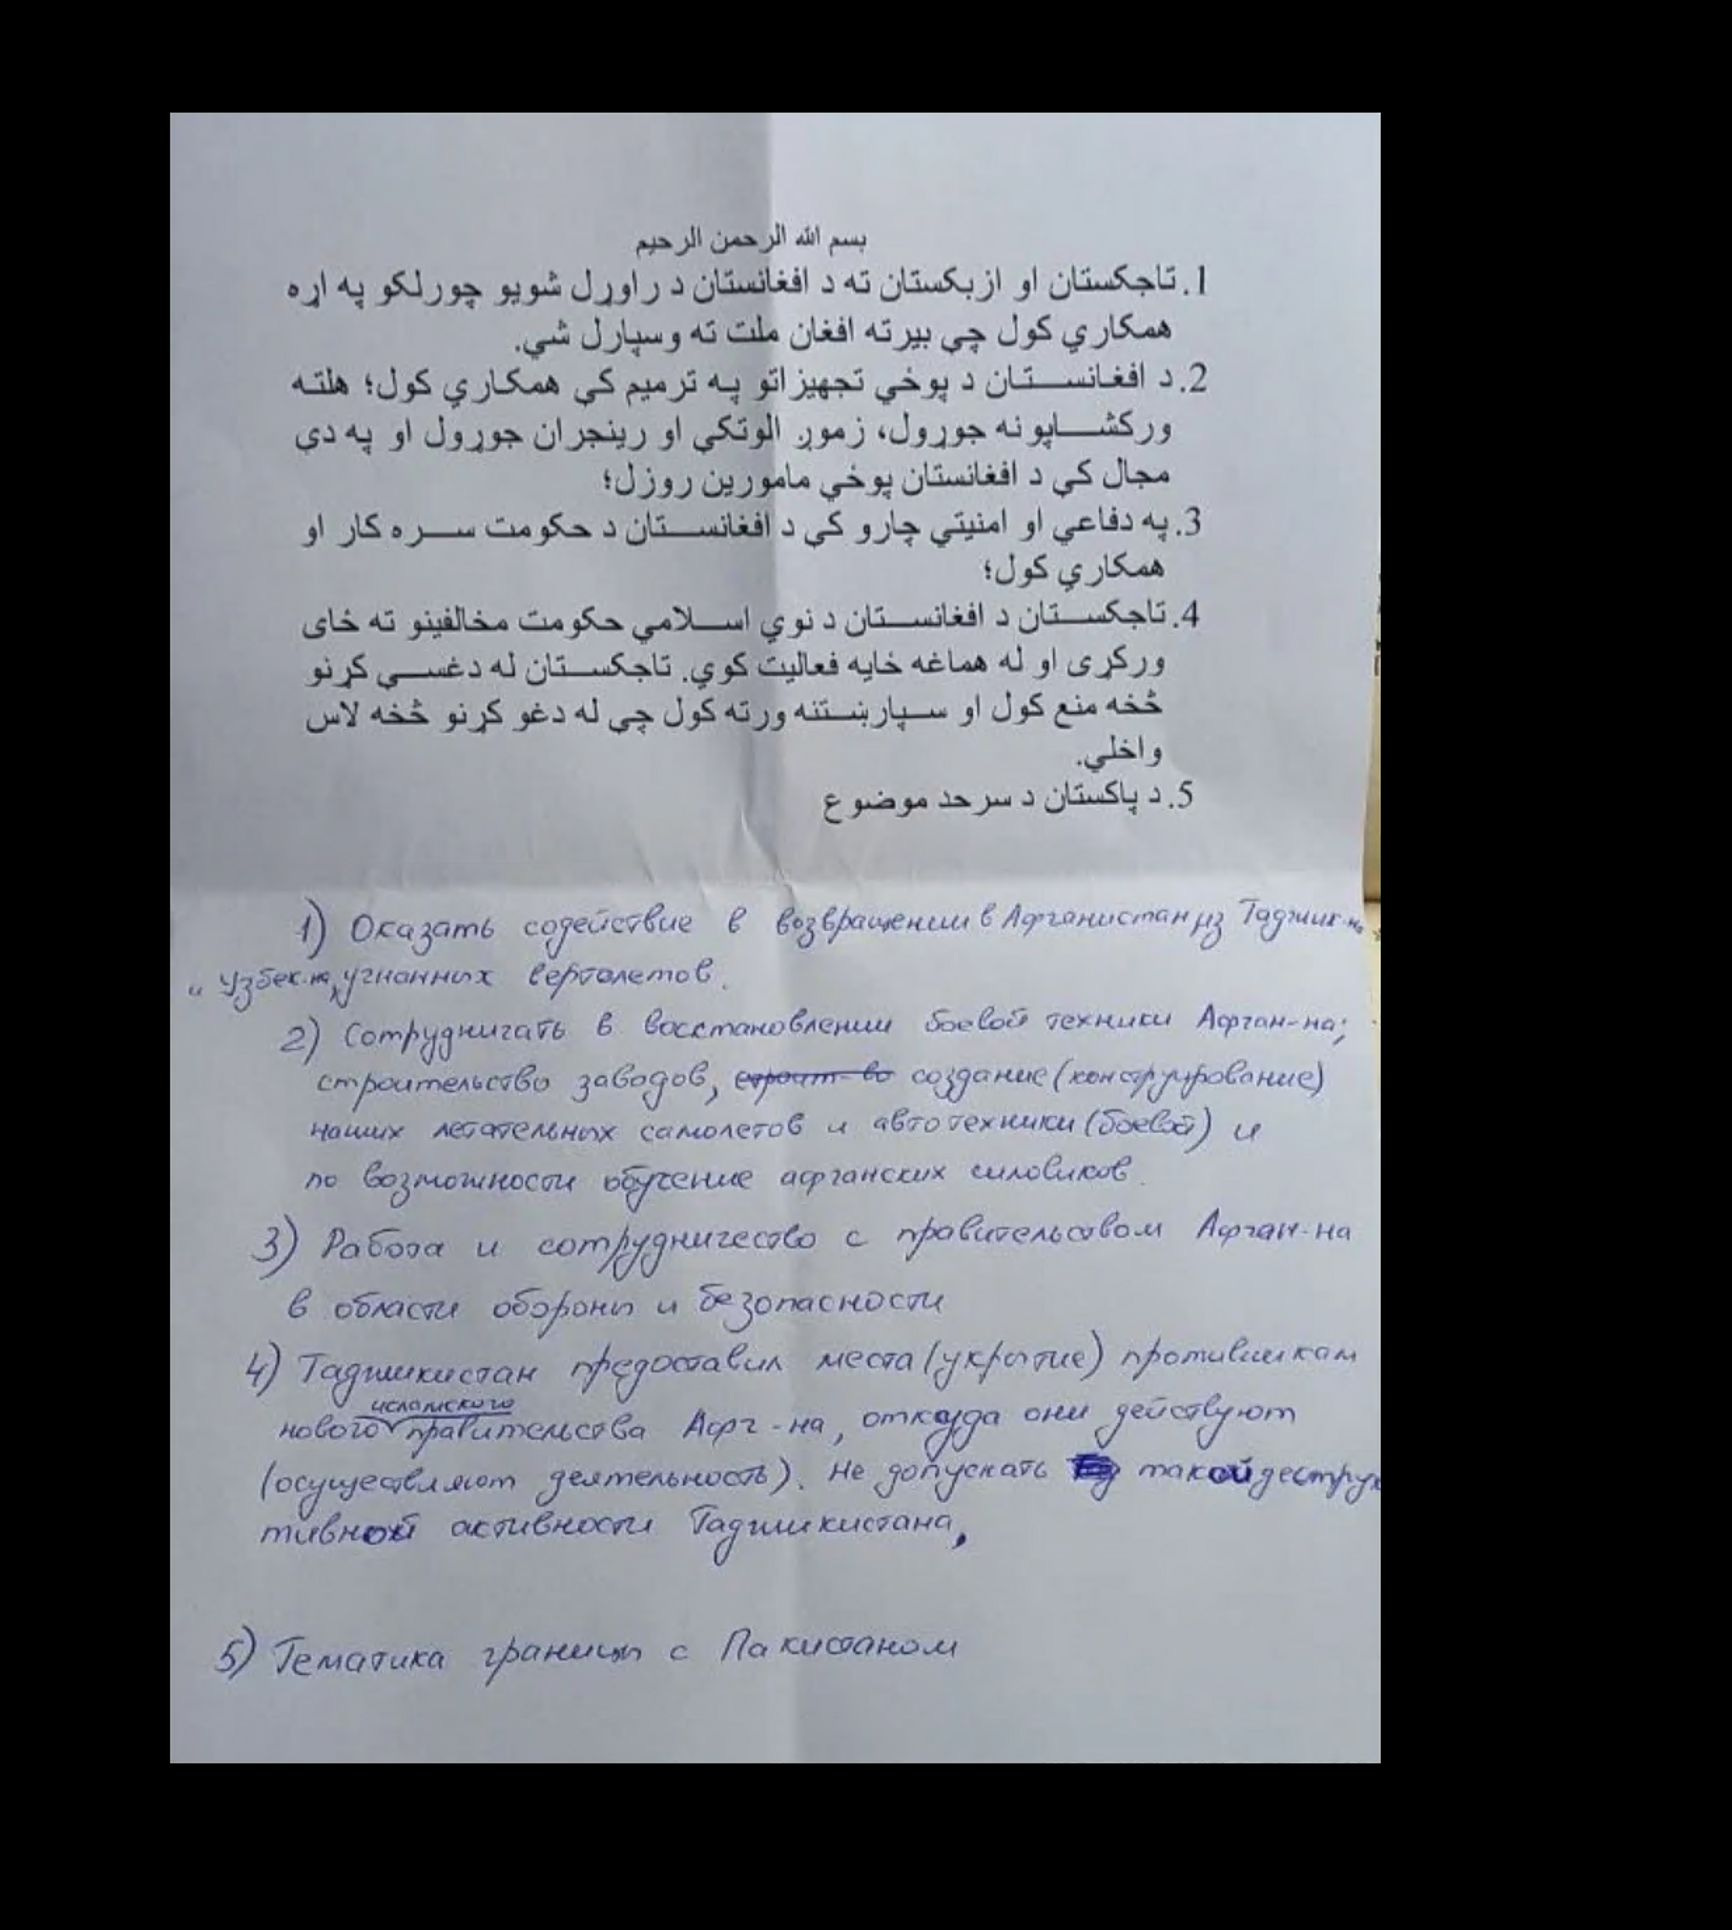 بسم الله الرحمن الرحيم
1. تاجکستان او ازبکستان ته د افغانستان د راوړل شويو چورلکو په اړه
همکاري کول چې بيرته افغان ملت ته وسپارل شي.
2. د افغانستان د پوځي تجهيزاتو په ترميم کې همکاري کول؛ هلته
ورکشاپونه جوړول، زموږ الوتکې او رينجران جوړول او په دې
مجال کې د افغانستان پوځي مامورين روزل؛
3. په دفاعي او امنيتي چارو کې د افغانستان د حکومت سره کار او
همکاري کول؛
4. تاجکستان د افغانستان د نوي اسلامي حکومت مخالفينو ته ځای
ورکړی او له هماغه ځايه فعاليت کوي. تاجکستان له دغسې کړنو
څخه منع کول او سپارښتنه ورته کول چې له دغو کړنو څخه لاس
واخلي.
5. د پاکستان د سرحد موضوع
1) Оказать содействие в возвращении в Афганистан из Таджик-на
и Узбек-на угнанных верталетов.
2) Сотрудничать в восстановлении боевой техники Афган-на;
строительство заводов, строит-во создание (конструирование)
наших летательных самолетов и автотехники (боевой) и
по возможности обучение афганских силовиков.
3) Работа и сотрудничество с правительством Афган-на
в области обороны и безопасности
4) Таджикистан предоставил места (укрытие) противникам
исламского
нового правительства Афг-на, откуда они действуют
(осуществляют деятельность). Не допускать такой деструк
тивной активности Таджикистана.
5) Тематика границы с Пакистаном